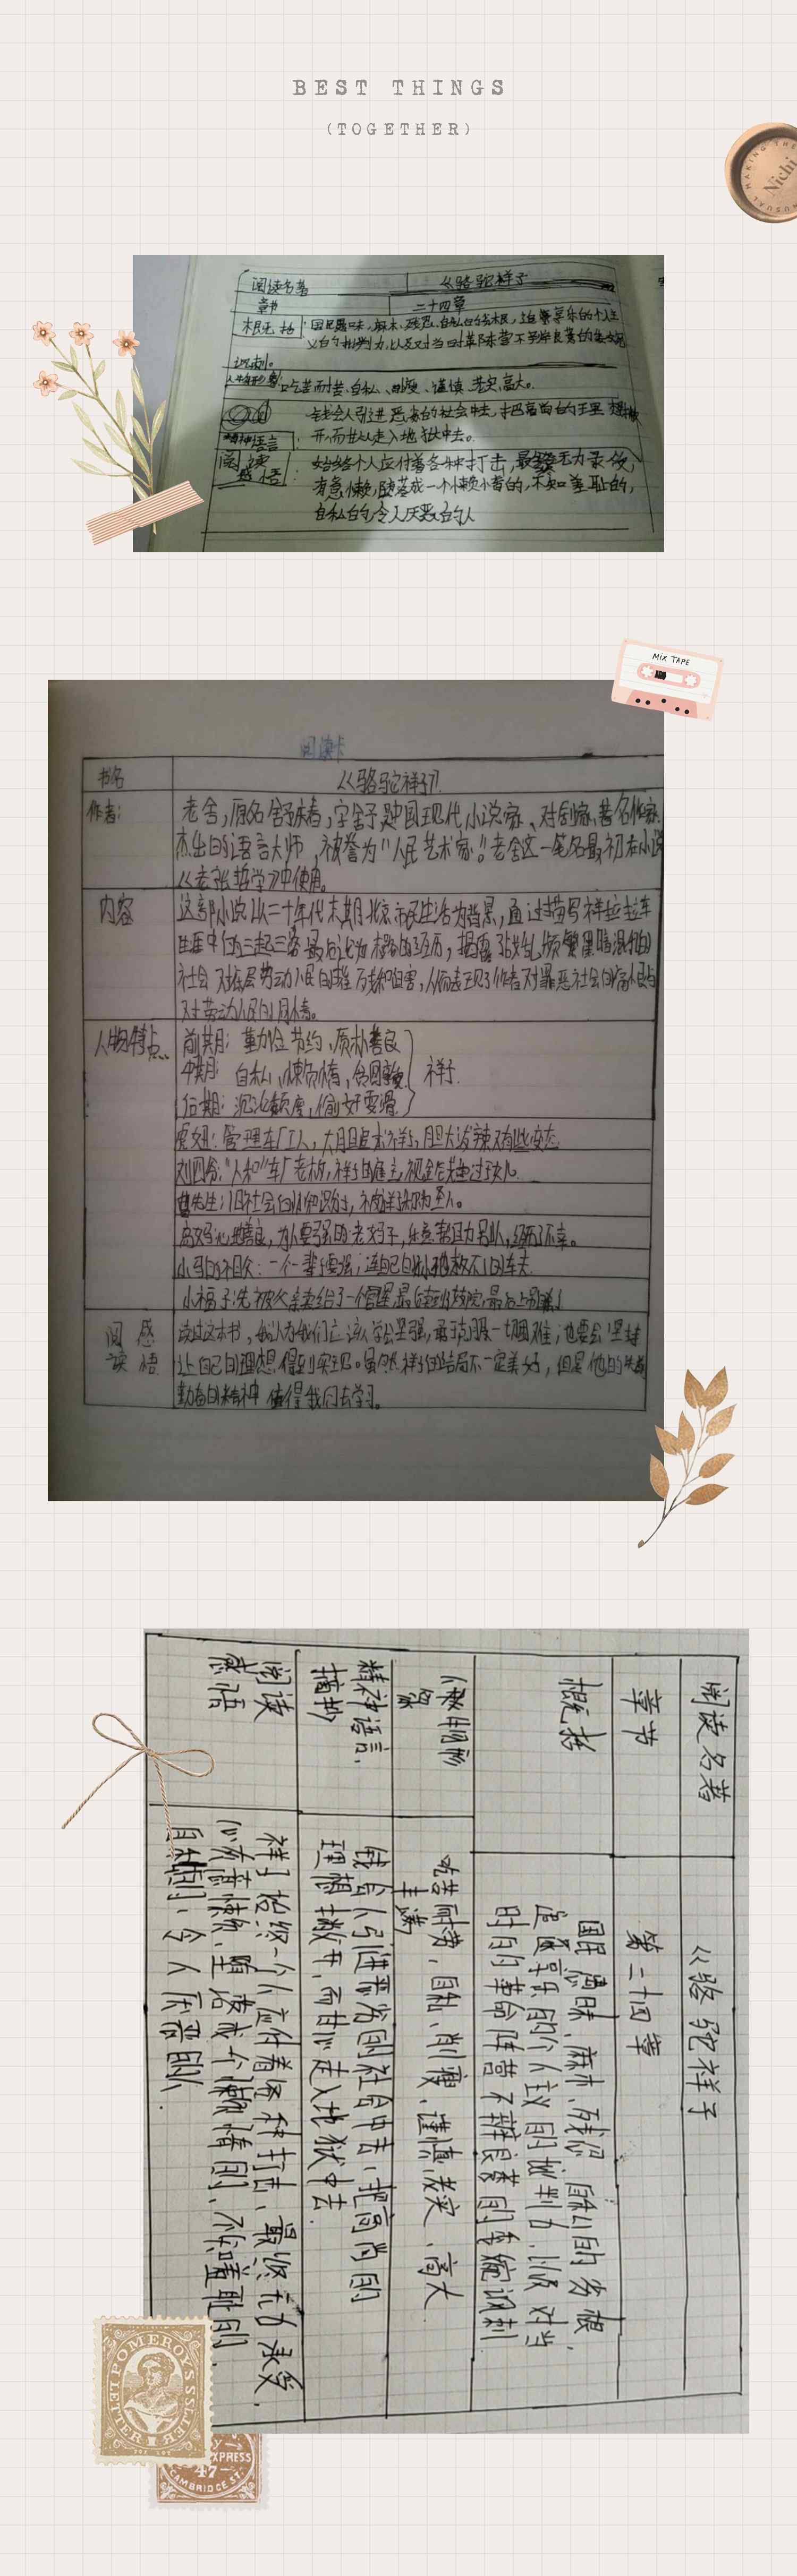 BEST THINGS
(TOGETHER)
MAKING THE
Nichi
UNUSUAL
阅读名著 《骆驼祥子
章节 二十四章
概括:国民愚昧、麻木、残忍、自私的劣根,追享乐的个人主
义的批判力,以及对当时革阵营不辨良莠的委婉
讽刺。
人物形象:吃苦而耐苦、自私、削瘦、谨慎、老实、高大。
钱会人引进恶劣的社会中去,把高尚的理想撇
开,而甘心走入地狱中去。
精神语言
阅读感悟:始终个人应付着各种打击,最终无力承受,
有怠懒,堕落成一个懒惰的,不知羞耻的,
自私的令人厌恶的人
MIX TAPE
阅读卡
书名 《骆驼祥子》
作者: 老舍,原名舒庆春,字舍予是中国现代小说家、著名作家
杰出的语言大师,被誉为“人民艺术家。”老舍这一笔名最初在小说
《老张哲学》中使用。
内容 这部小说以二十年代末期北京市民生活为背景,通过描写祥拉车
生涯中的三起三落最后沦为的经历,揭露了战乱频繁黑暗混乱的
社会对底层劳动人民的和迫害,从而表现了作者对罪恶社会的痛恨与
对劳动人民的同情。
人物特点 前期:勤俭节约、质朴善良
中期:自私、懒惰、贪图 祥子
后期:偷奸耍滑
虎妞:管理车厂工人,大胆追求祥子,胆大泼辣又有些变态
刘四爷:“人和”车厂老板,祥子的雇主,视金钱过女儿
曹先生:旧社会的知识分子,被祥子视为圣人。
高妈心地善良,为人要强的老妈子,乐意帮助别人,经历了不幸。
小马的祖父:一个一辈子要强,连自己的小孙也救不了的车夫
小福子:先被父亲卖给了一个军官最后卖到妓院,最后上吊
阅读感悟 读过这本书,我认为我们应该学会坚强,敢于克服一切困难,也要会坚持
让自己的理想得到实现。虽然祥子的结局不一定美好,但是他的
勤奋的精神值得我们去学习。
阅读名著 《骆驼祥子
章节 第二十四章
概括 国民愚昧、麻木、残忍、自私的劣根,
追逐享乐的个人主义的批判力,以及对当
时的革命阵营不辨良莠的委婉讽刺
人物形象 吃苦耐劳、自私、削瘦、谨慎、老实、高大
精神语言摘抄 钱会人引进恶劣的社会中去,把高尚的
理想撇开,而甘心走入地狱中去.
阅读感悟 祥子始终一个人应付着各种打击,最终无力承受,
心有怠懒、堕落成个懒惰的、不知羞耻的、
自私的、令人厌恶的人.
POMEROY'S
LETTER
EXPRESS
47
CAMBRIDGE ST.